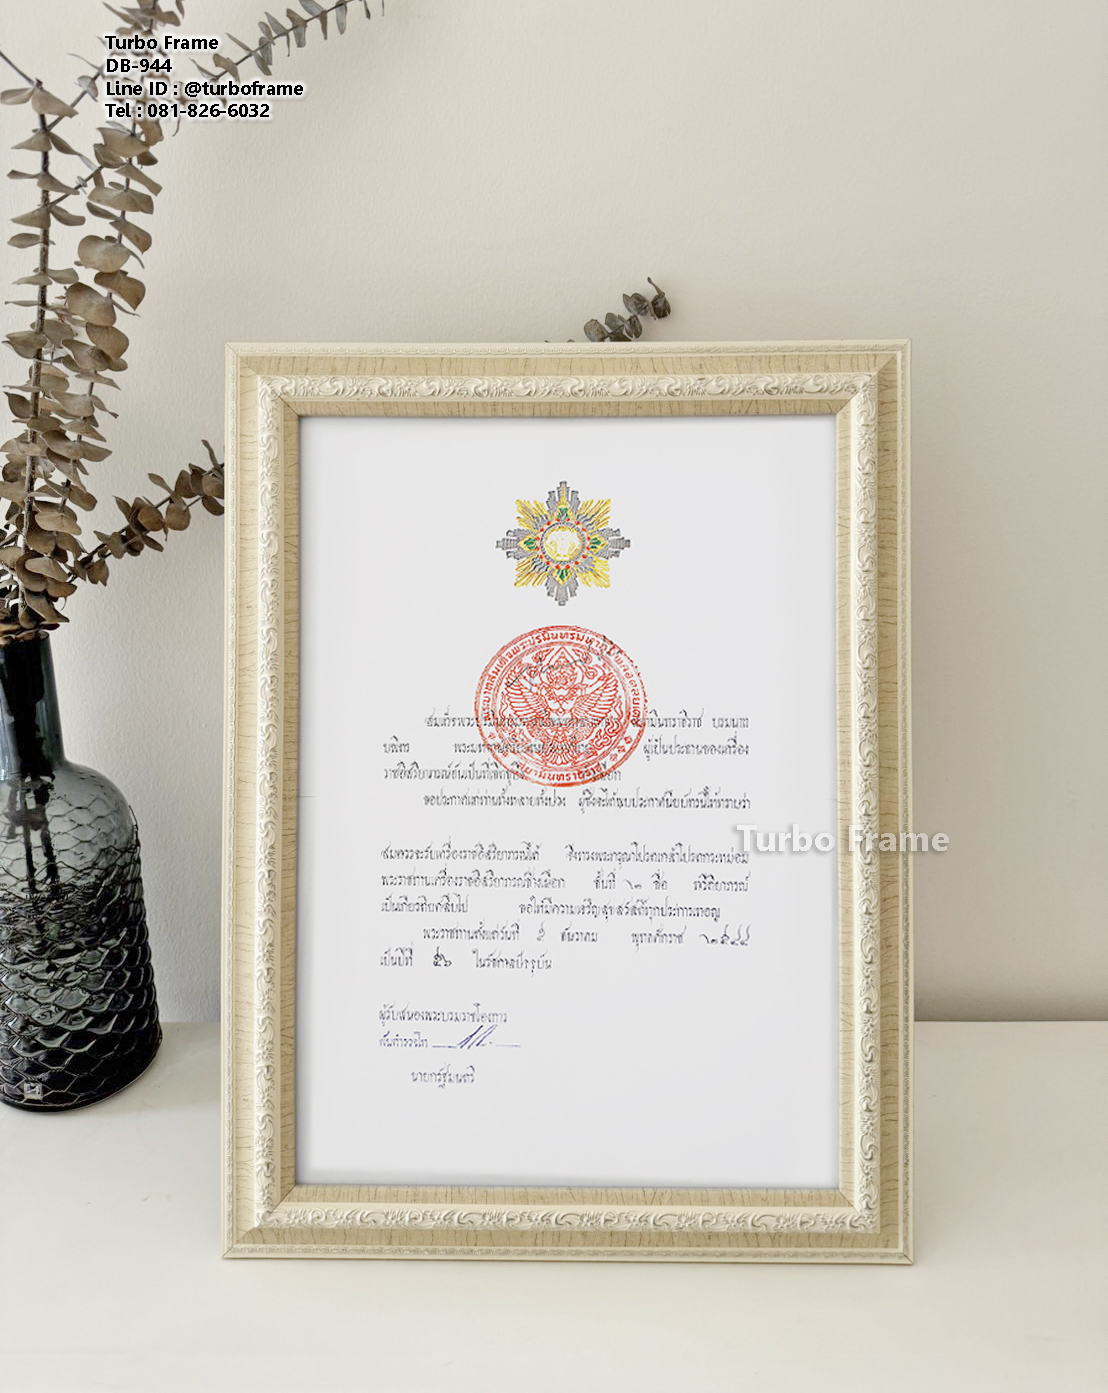 Turbo Frame
DB-944
Line ID : @turboframe
Tel : 081-826-6032
สมเด็จพระปรมินทร สยามินทราธิราช บรมนาถ
บพิตร ผู้เป็นประธานของเครื่อง
ราชอิสริยาภรณ์อันเป็นที่เชิดชู
ขอประกาศแก่ท่านทั้งหลายทั้งปวง ผู้ซึ่งจะได้พบประกาศนียบัตรนี้ให้ทราบว่า
Turbo Frame
สมควรจะรับเครื่องราชอิสริยาภรณ์ได้ จึงทรงพระกรุณาโปรดเกล้าโปรดกระหม่อม
พระราชทานเครื่องราชอิสริยาภรณ์ช้างเผือก ชั้นที่ ๒ ชื่อ ทวีติยาภรณ์
เป็นเกียรติยศสืบไป ขอให้มีความเจริญสุขสวัสดิ์ทุกประการเทอญ
พระราชทานตั้งแต่วันที่ ๕ ธันวาคม พุทธศักราช ๒๕๔๔
เป็นปีที่ ๕๖ ในรัชกาลปัจจุบัน
ผู้รับสนองพระบรมราชโองการ
นายกรัฐมนตรี